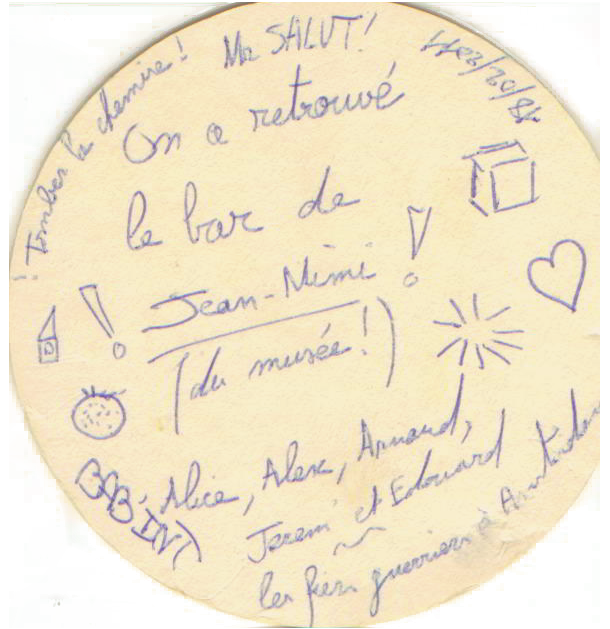 ! Tomber la chemise !
Ma SALUT !
On a retrouvé
le bar de
Jean-Mimi !
(du musée !)
Alice, Alex, Arnaud,
Jeremi et Edouard
les fiers guerriers à